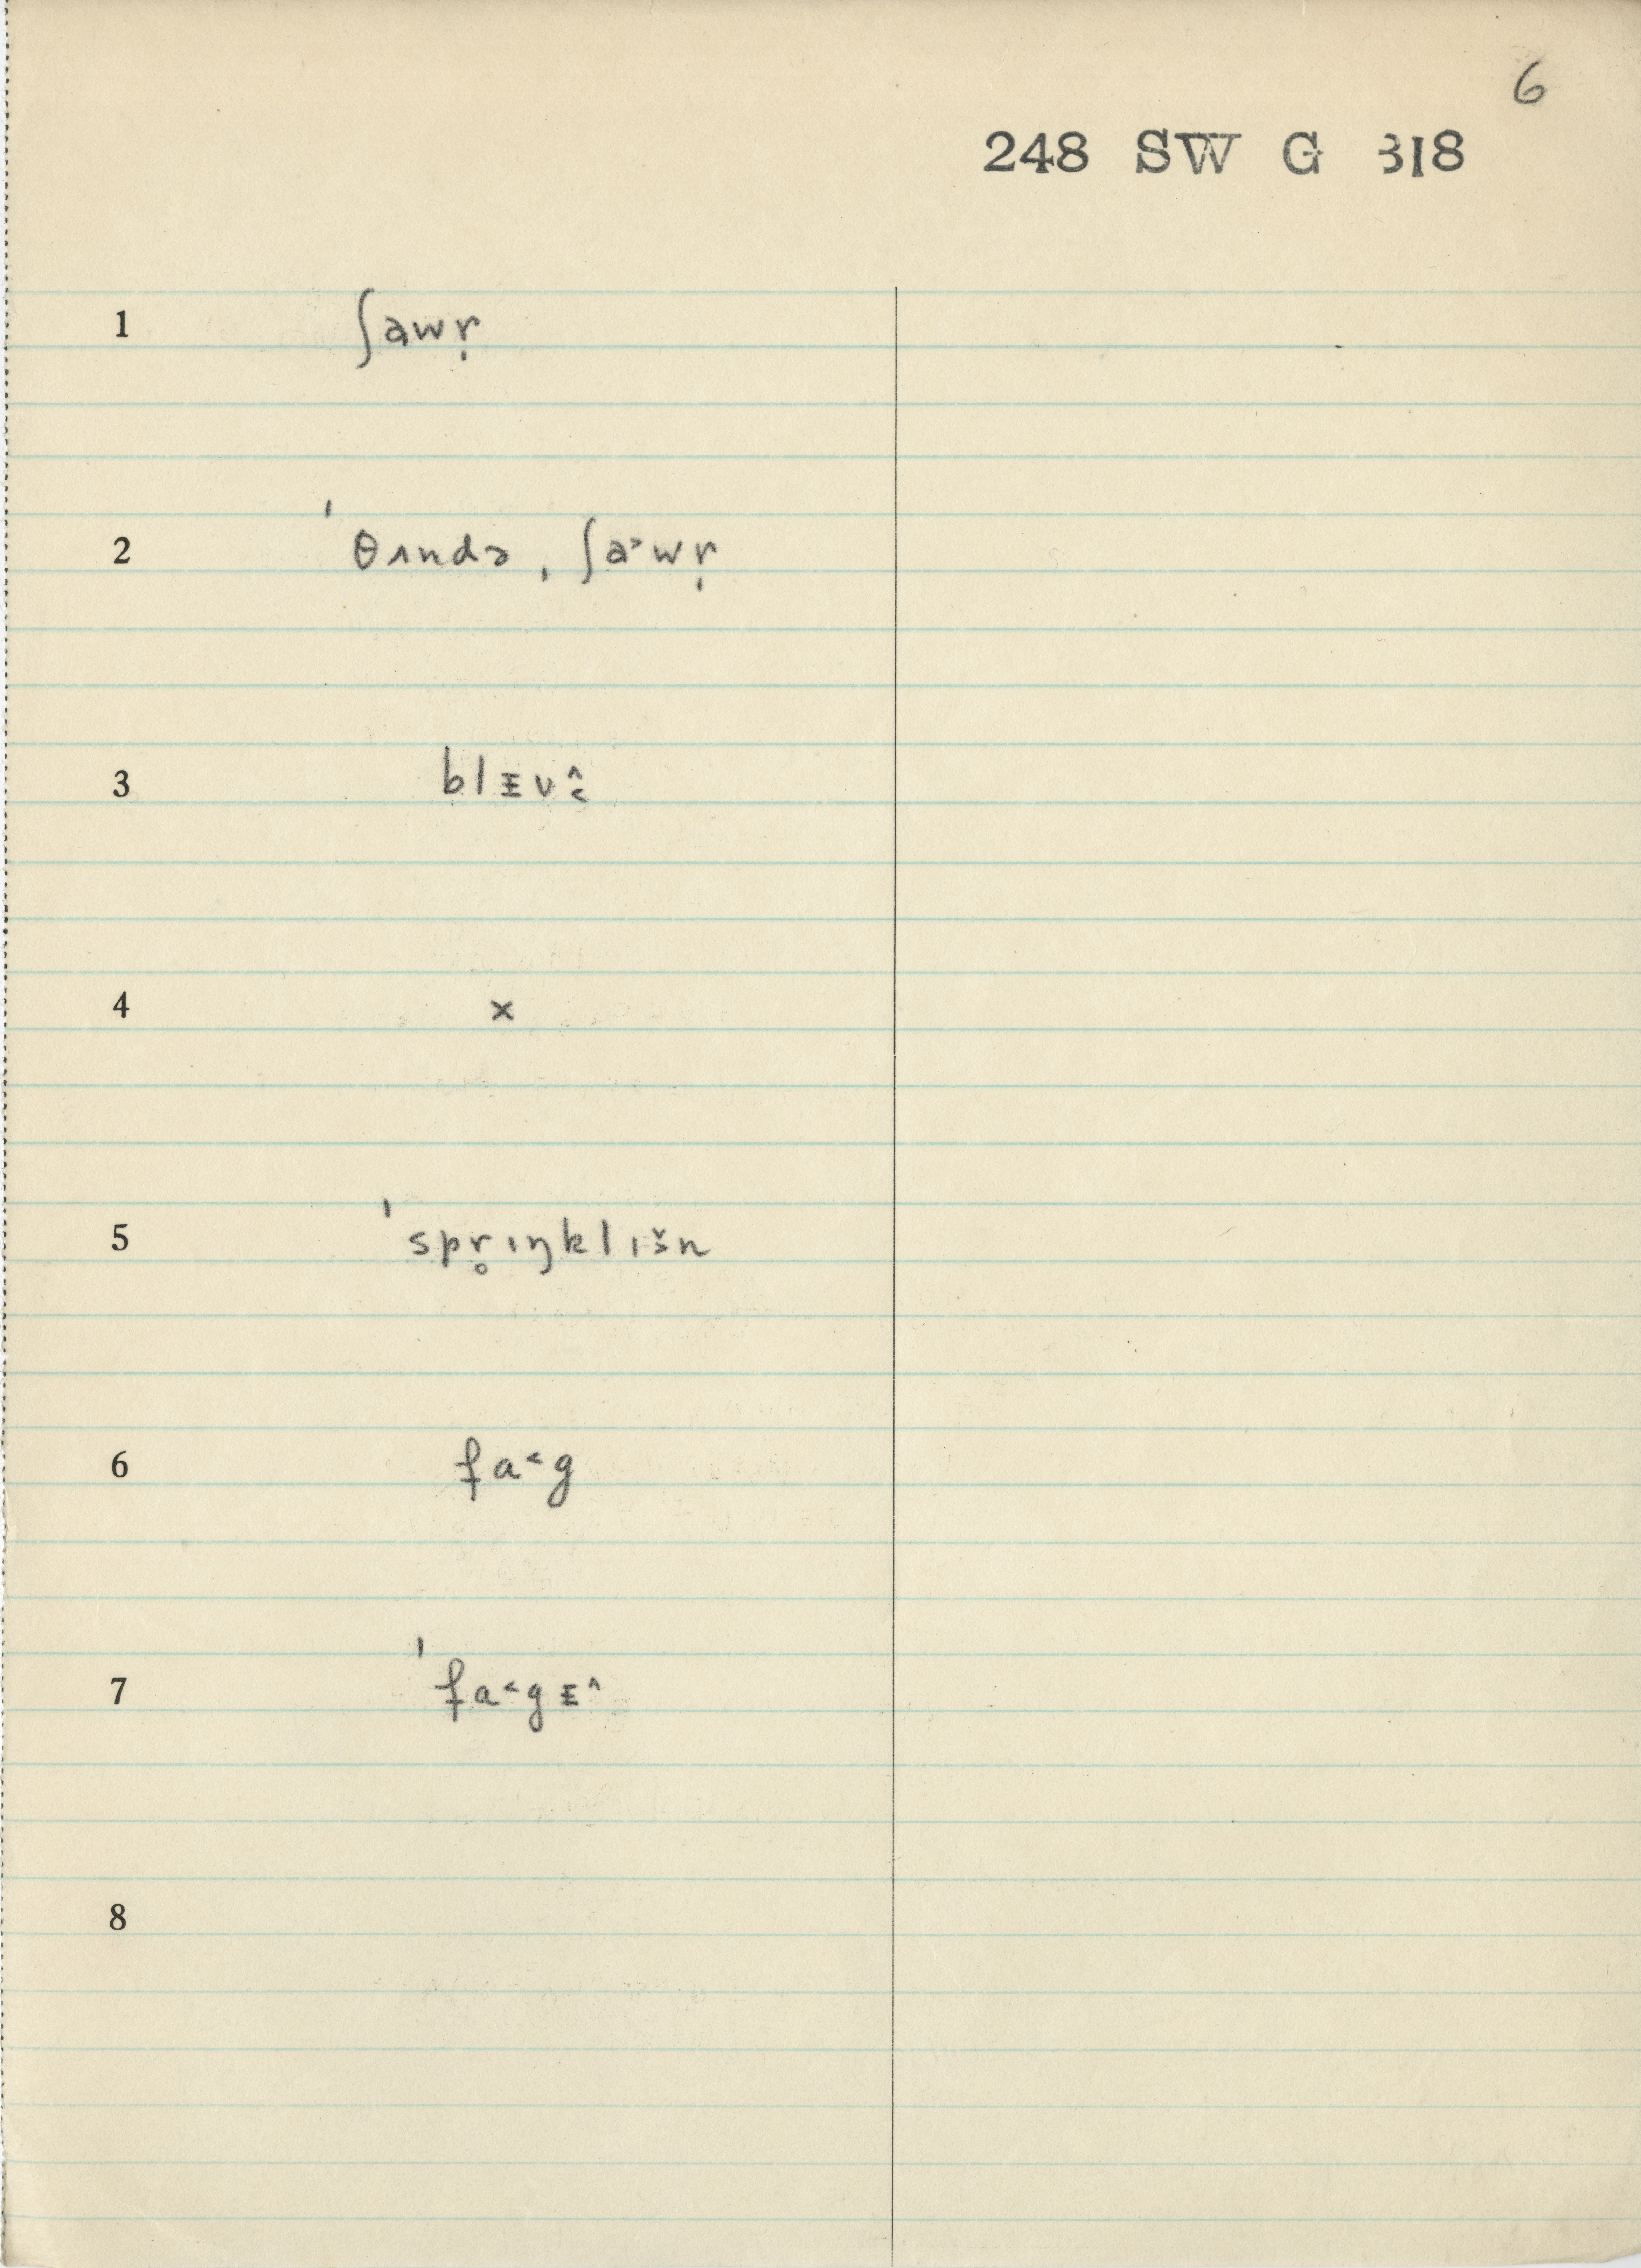 6
248 SW G 318
1 ʃawṛ
2 ˈθʌndə ˌʃa˃wṛ
3 blᵻv̭̂
4 x
5 ˈspr̥ɪŋklɪšn
6 fa˂g
7 ˈfa˂gᵻ^
8